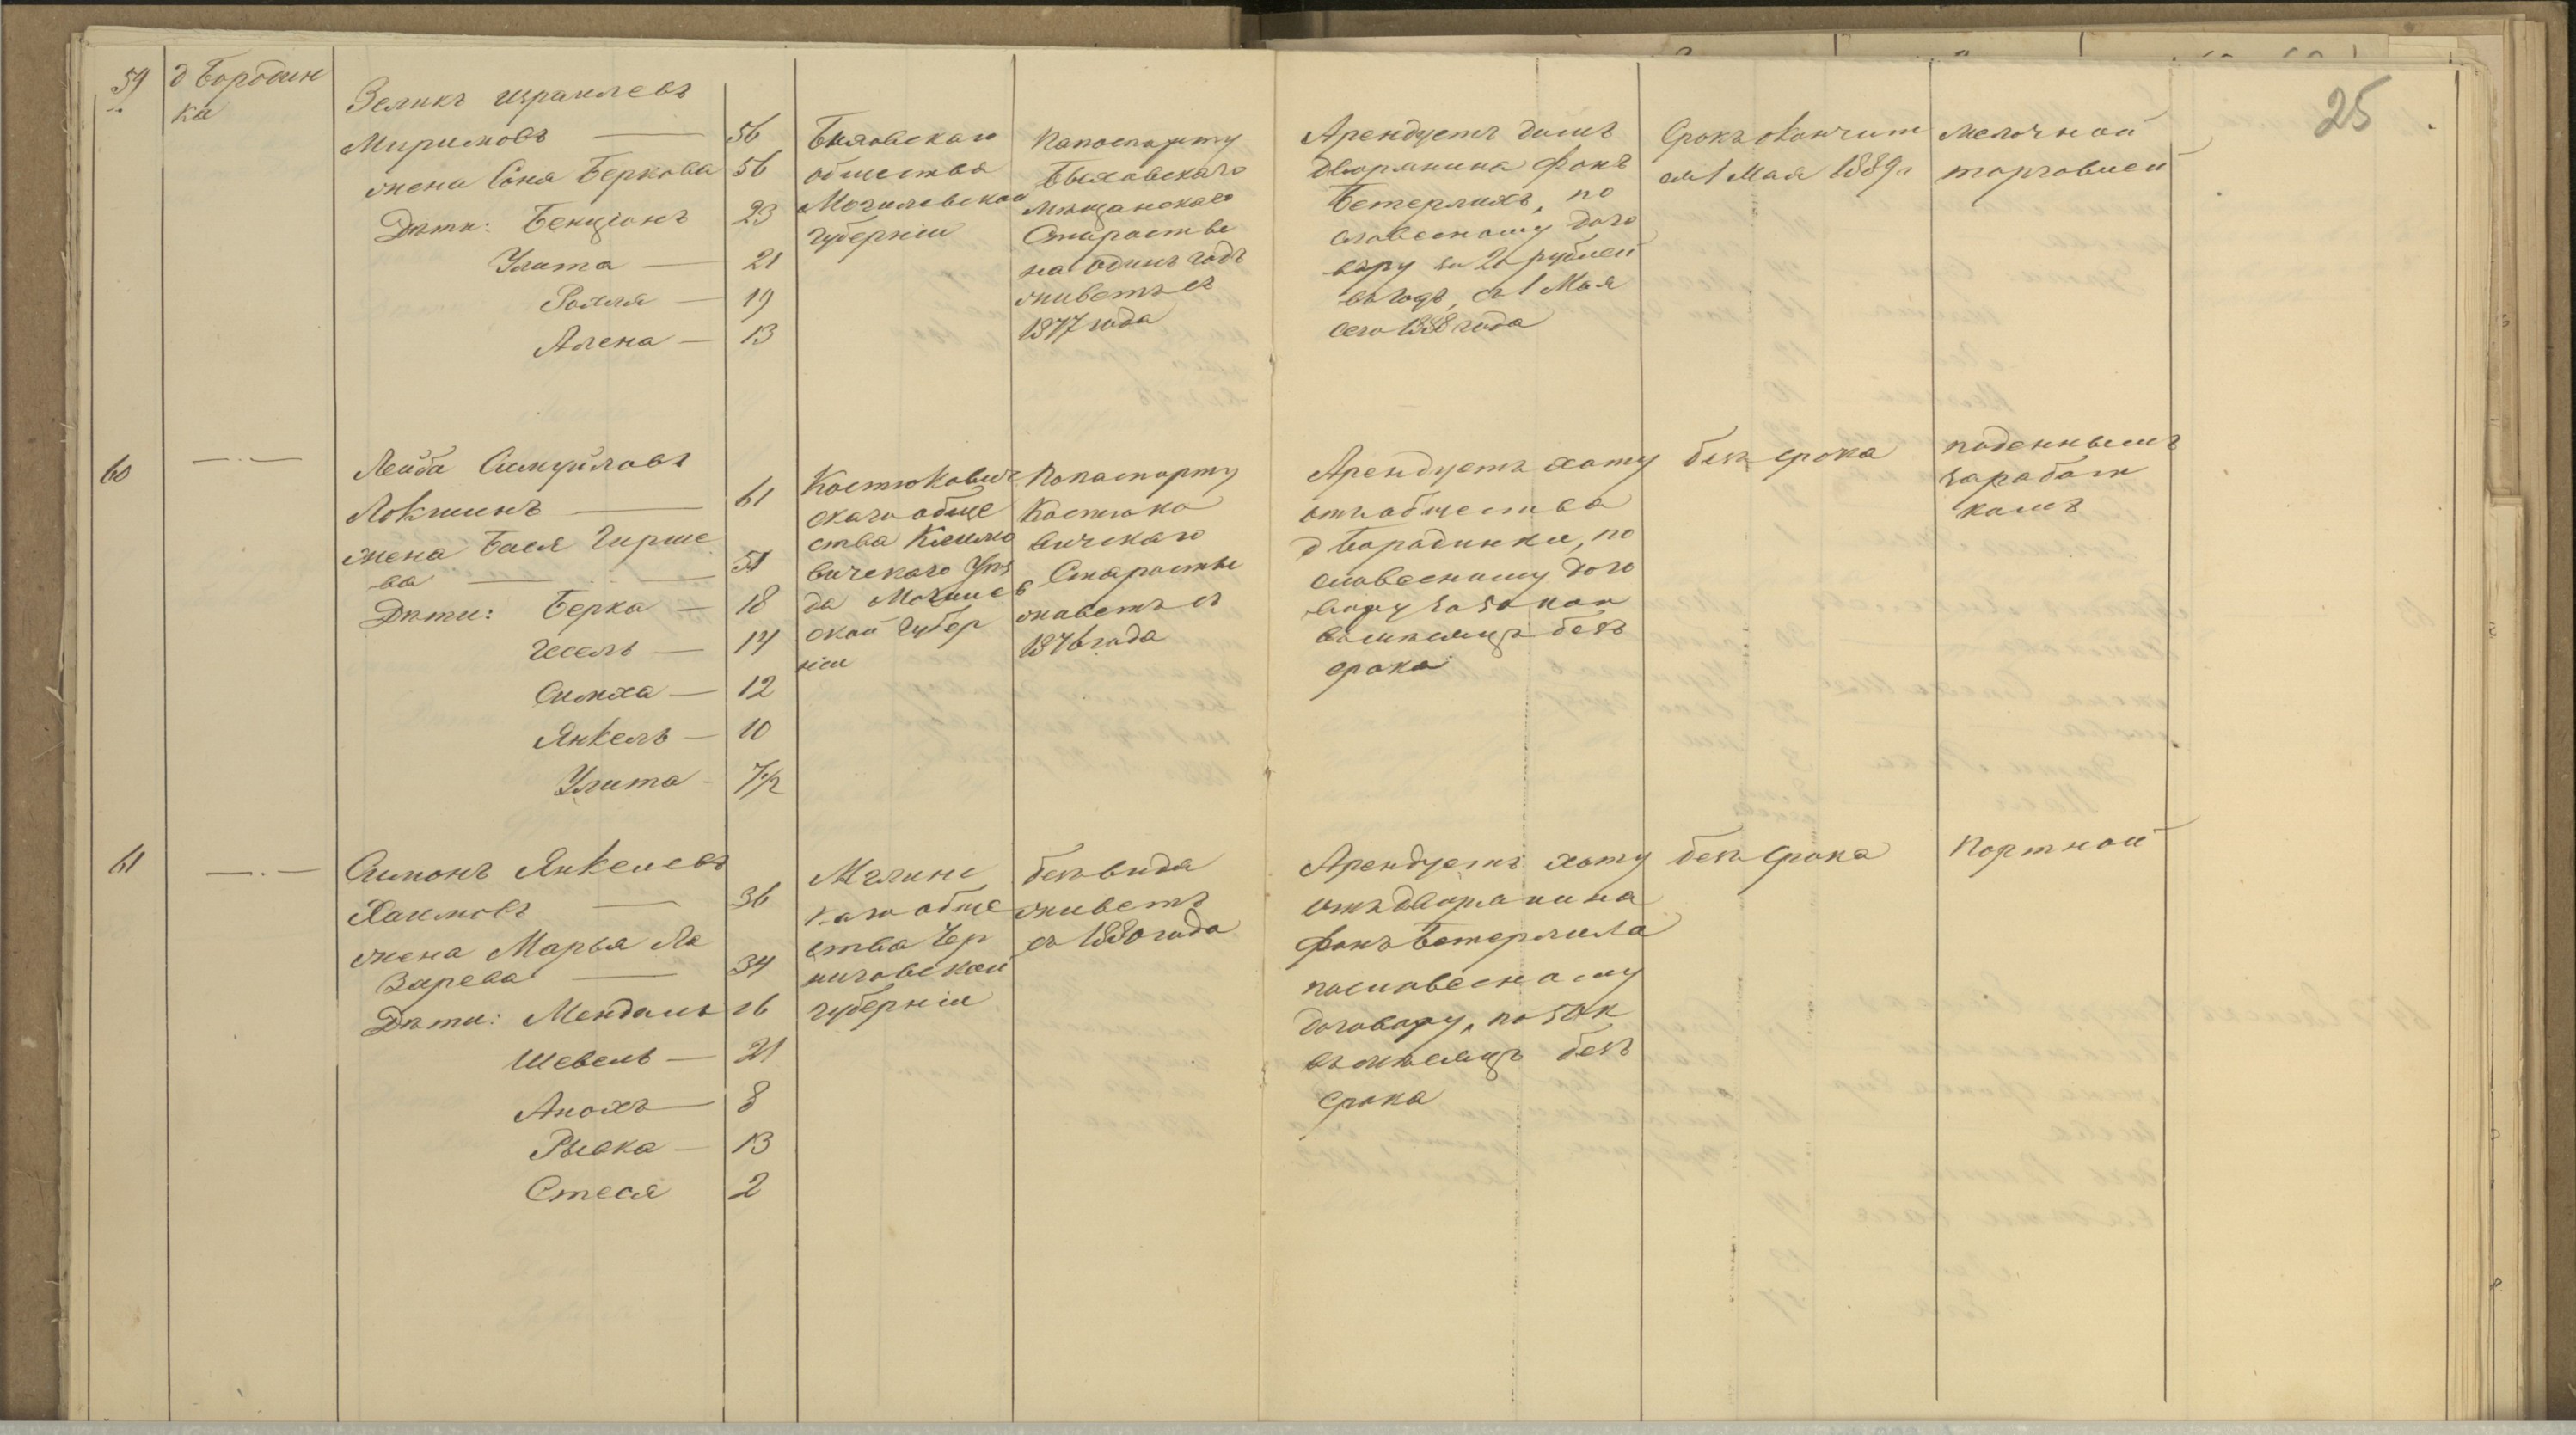 25
59
д Бородин
ка
Зеликъ Израилевъ
Миримовъ — 56
жена Соня Беркова 56
Дѣти: Бенцiонъ 23
Улита — 21
Рохля — 19
Алена — 13
Быховскаго
общества
Могилевской
губернiи
Попаспорту
Быховскаго
мѣщанскаго
Старосты
на одинъ годъ
живетъ съ
1877 года
Арендуетъ домъ
дворянина фонъ
по
словесному дого
вору за 20 рублей
въ годъ, съ 1 Мая
сего 1888 года
Срокъ окончит
ся 1 Мая 1889 г
мелочной
торговлей
60
—.—
Лейба Самуйловъ
Локшинъ — 61
жена Бася Гирше
ва — 51
Дѣти: Берка — 18
Гесель — 14
Симха — 12
Янкель — 10
Улита - 7 1/2
Костюкович
скаго обще
ства Климо
вичскаго Уѣз
да Могилев
ской Губер
нiи
Попаспорту
Костюко
вичскаго
Старосты
живетъ съ
1876 года
Арендуетъ хату
отъ общества
д Бородинки, по
словесному дого
вору за 50 коп
въ мѣсяцъ безъ
срока
безъ срока
поденнымъ
заработ
комъ
61
—.—
Симонъ Янкелевъ
Хаимовъ — 36
жена Марья Ла
зарева — 34
Дѣти: Мендель 16
Шевель — 21
Анохъ — 8
Рывка — 13
Стеся 2
Мглинс
каго обще
ства Чер
ниговской
губернiи
безъ вида
живетъ
съ 1880 года
Арендуетъ хату
отъ дворянина
фонъ
пословесному
договору, по 50 к
въ мѣсяцъ безъ
срока
безъ срока
Портной